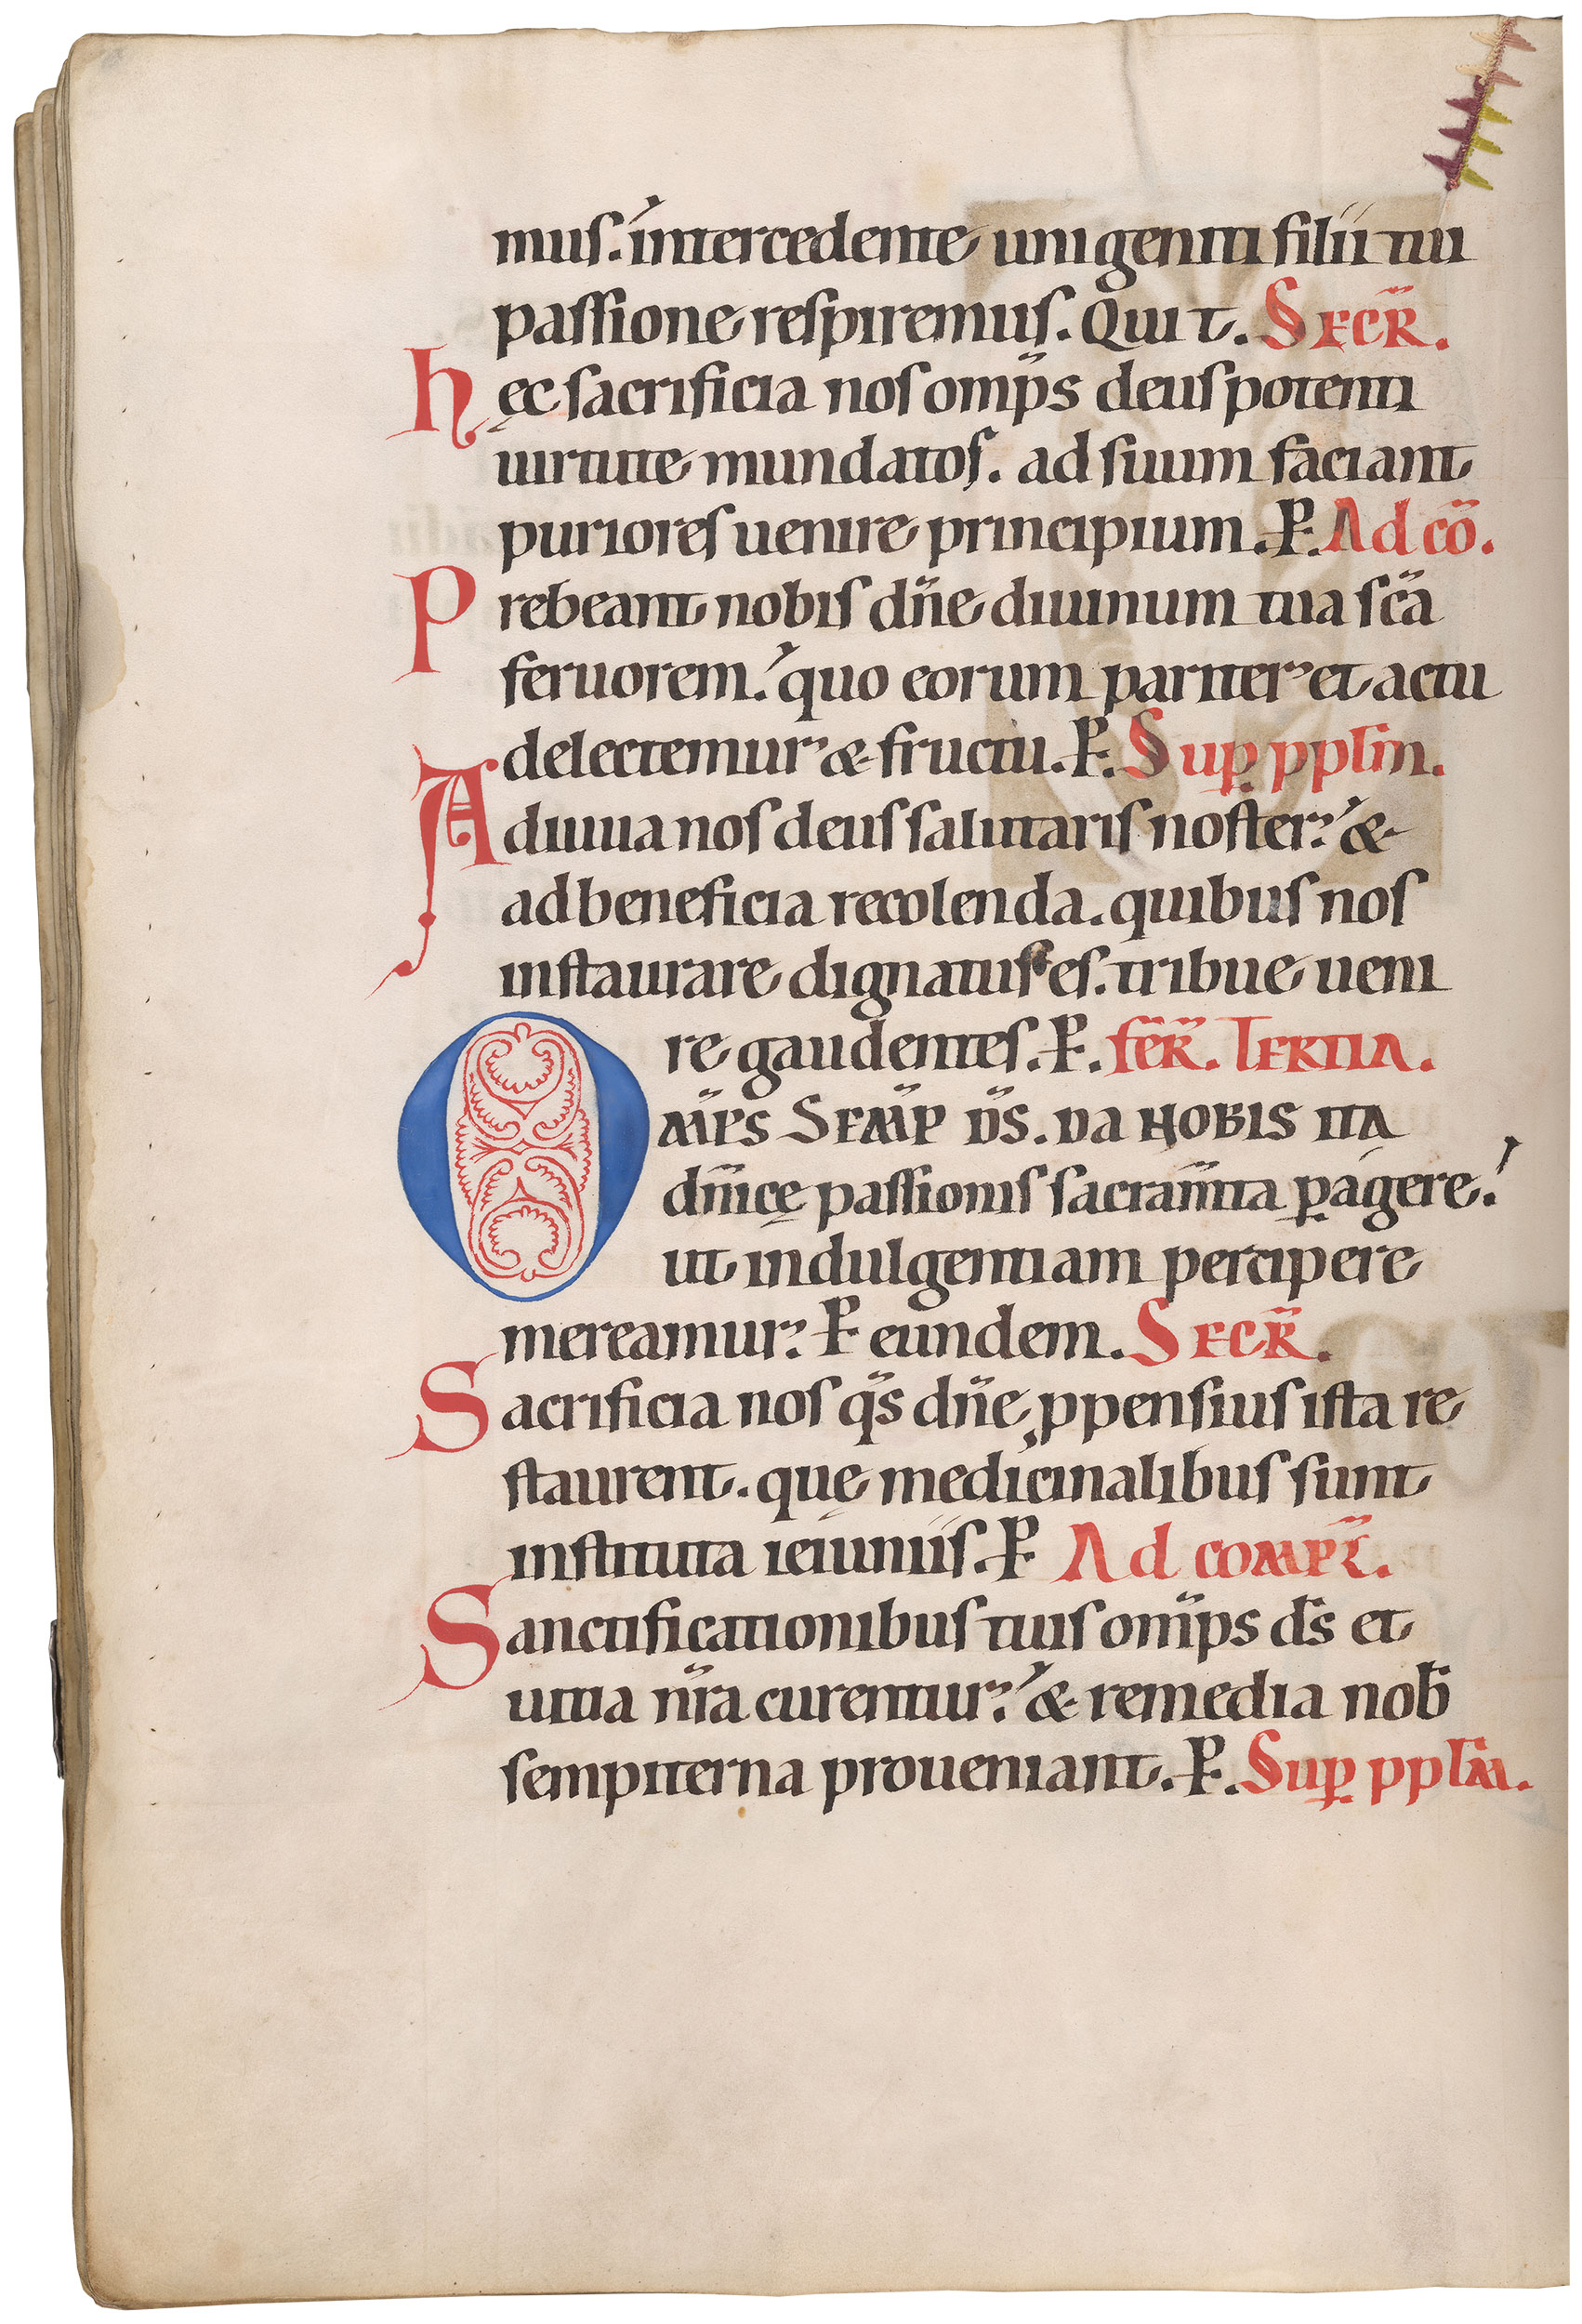 muſ. intercedente unigeniti filii tui
paſſione reſpiremuſ. Qui t. Secr̄.
hęc ſacrificia noſ omp̄s deuſ potenti
uirtute mundatoſ. ad ſuum faciant
purioreſ uenire principium. P. Ad cō.
Prebeant nobiſ dn̄e diuinum tua ſc̄a
feruorem. quo eorum pariter et actu
delectemur & fructu. P. Sup̱ ppl̄m.
Adiuua noſ deuſ ſalutariſ noſter. &
ad beneficia recolenda. quibuſ noſ
inſtaurare dignatuſ eſ. tribue ueni
re gaudenteſ. P. fer̄. Tertia.
Om̄ps Semp̄ d̄s. da nobis ita
dn̄icę paſſioniſ ſacram̄ta p̱agere.
ut indulgentiam percipere
mereamur. P eundem. Secr̄.
Sacrificia noſ q̄s dn̄e ꝓpenſiuſ iſta re
ſtaurent. quę medicinalibuſ ſunt
inſtituta ieiuniiſ. P Ad compt̄.
Sanctificationibuſ tuiſ om̄ps d̄s et
uitia nr̄a curentur. & remedia nob̄
ſempiterna proueniant. P. Sup̱ ppl̄m.